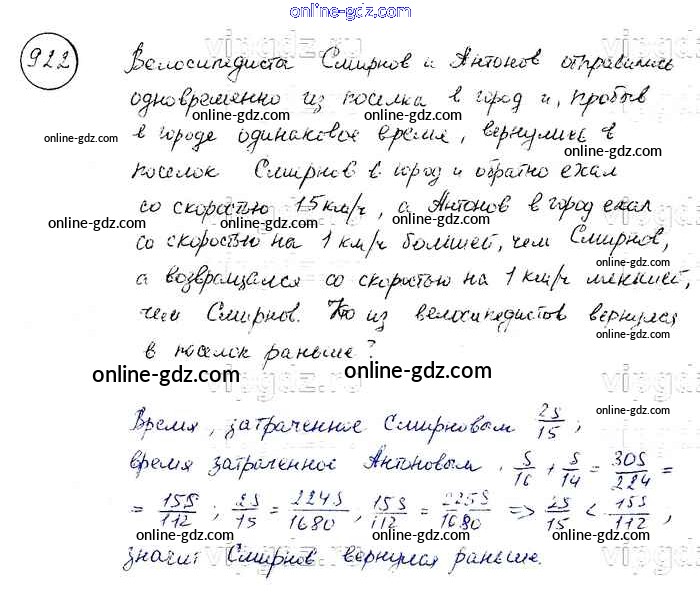 online-gdz.com
922
Велосипедиста Смирнов и Антонов отправились
одновременно из поселка в город и, пробыв
online-gdz.com online-gdz.com
в городе одинаковое время, вернулись в
online-gdz.com online-gdz.com
поселок Смирнов в город и обратно ехал
со скоростью 15 км/ч, а Антонов в город ехал
online-gdz.com online-gdz.com online-gdz.com
со скоростью на 1 км/ч большей, чем Смирнов,
online-gdz.com
а возвращался со скоростью на 1 км/ч меньшей,
чем Смирнов. Кто из велосипедистов вернулся
online-gdz.com
в поселок раньше?
online-gdz.com online-gdz.com
Время, затраченное Смирновым 2S/15;
online-gdz.com
время затраченное Антоновым, S/16 + S/14 = 30S/224 =
= 15S/112; 2S/15 = 224S/1680, 15S/112 = 225S/1680 => 2S/15 < 15S/112,
online-gdz.com online-gdz.com
значит Смирнов вернулся раньше.
online-gdz.com